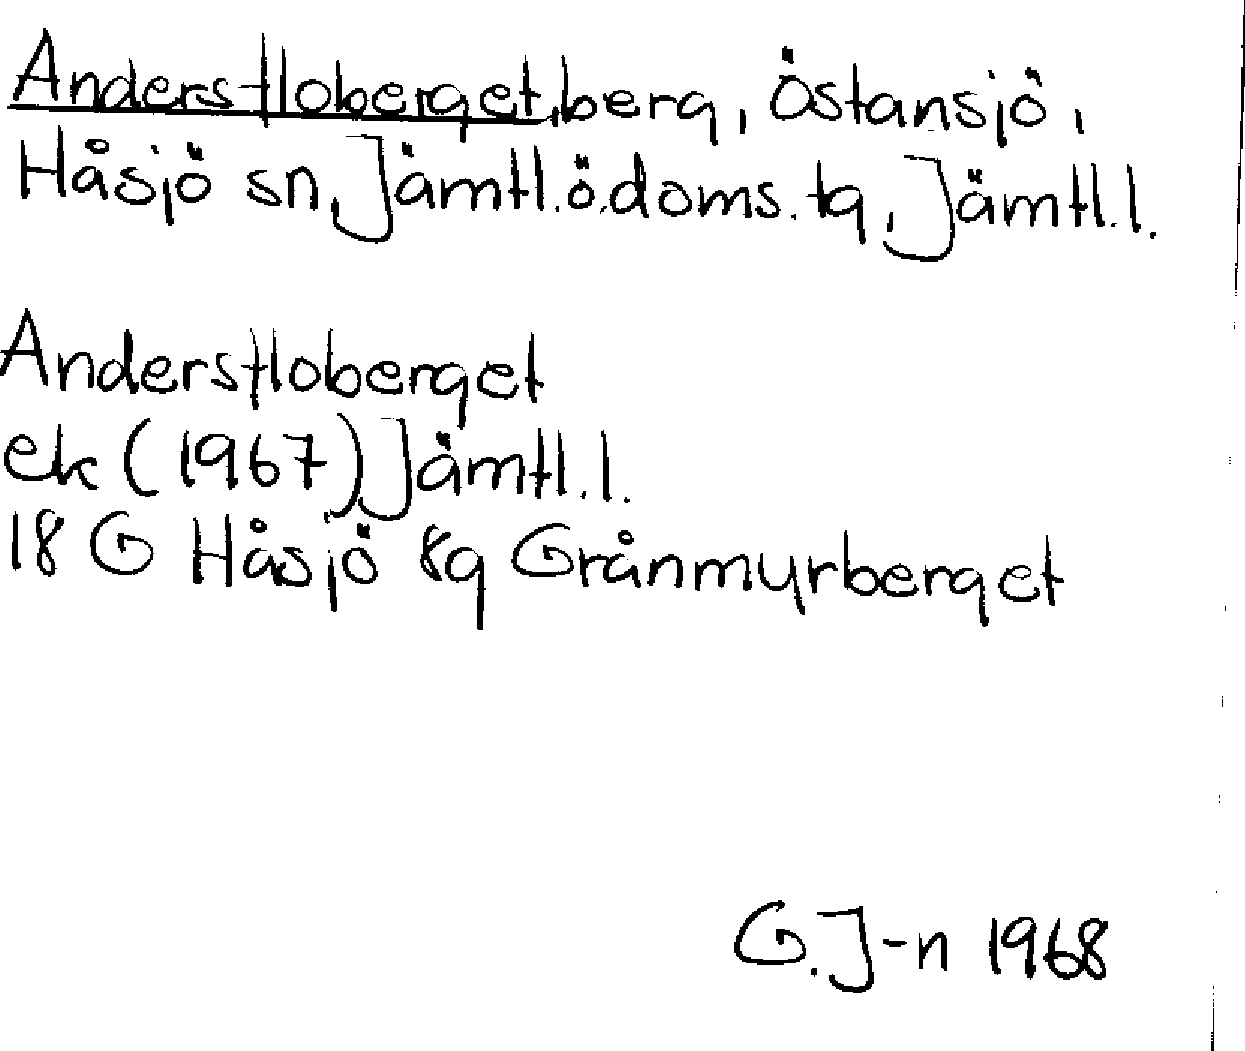 Anderstloberget, berg, Östansjö,
Håsjö sn, Jämtl.ö.doms.tg, Jämtl.l.
Anderstloberget
ek (1967) Jämtl.l.
18 G Håsjö 8g Grånmyrberget
G.J-n 1968